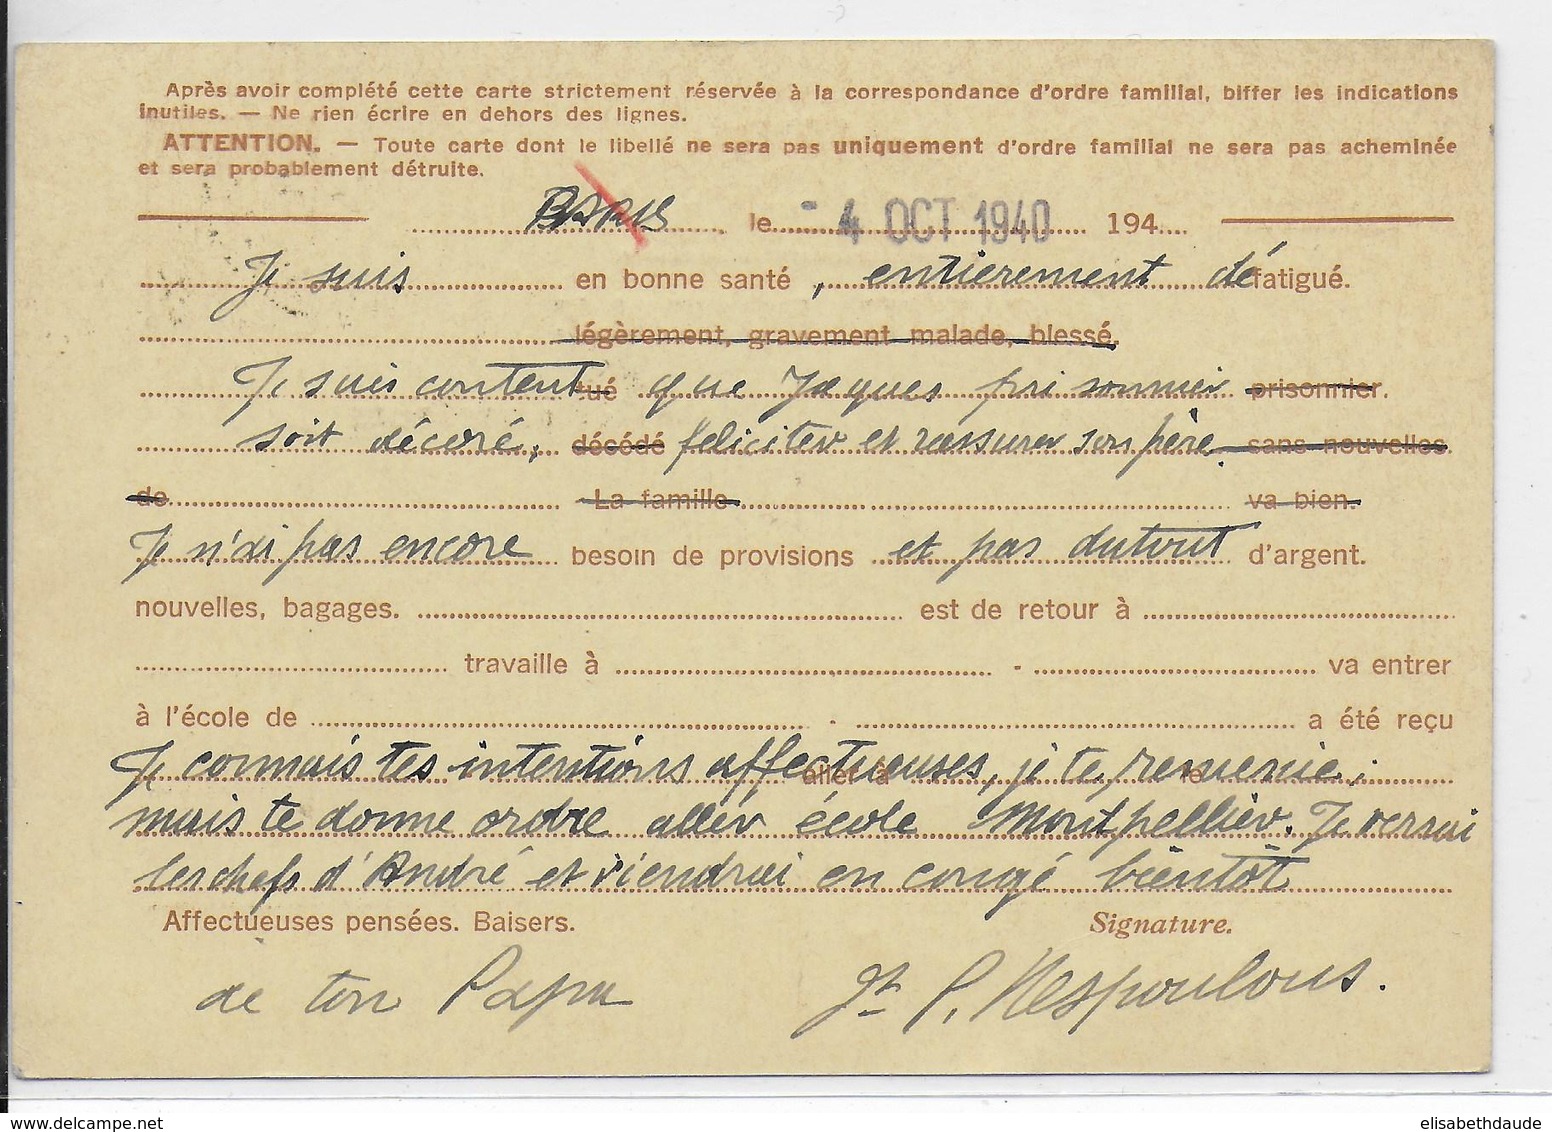 Après avoir complété cette carte strictement réservée à la correspondance d'ordre familial, biffer les indications
inutiles. — Ne rien écrire en dehors des lignes.
ATTENTION. — Toute carte dont le libellé ne sera pas uniquement d'ordre familial ne sera pas acheminée
et sera probablement détruite.
PARIS le - 4 OCT 1940 194
Je suis en bonne santé, entierement défatigué.
légèrement, gravement malade, blessé.
Je suis content tué que Jaques prisonnier prisonnier.
soit décoré; décédé feliciter et rassurer son père. sans nouvelles
de La famille va bien.
Je n'ai pas encore besoin de provisions et pas du tout d'argent.
nouvelles, bagages. est de retour à
travaille à - va entrer
à l'école de - a été reçu
Je connais tes intentions affectueuses, aller à je te remercie; le
mais te donne ordre aller école Montpellier. Je verrai
les chefs d'André et viendrai en congé bientôt
Affectueuses pensées. Baisers. Signature.
de ton Papa P. Nespoulous.
www.delcampe.net elisabethdaude